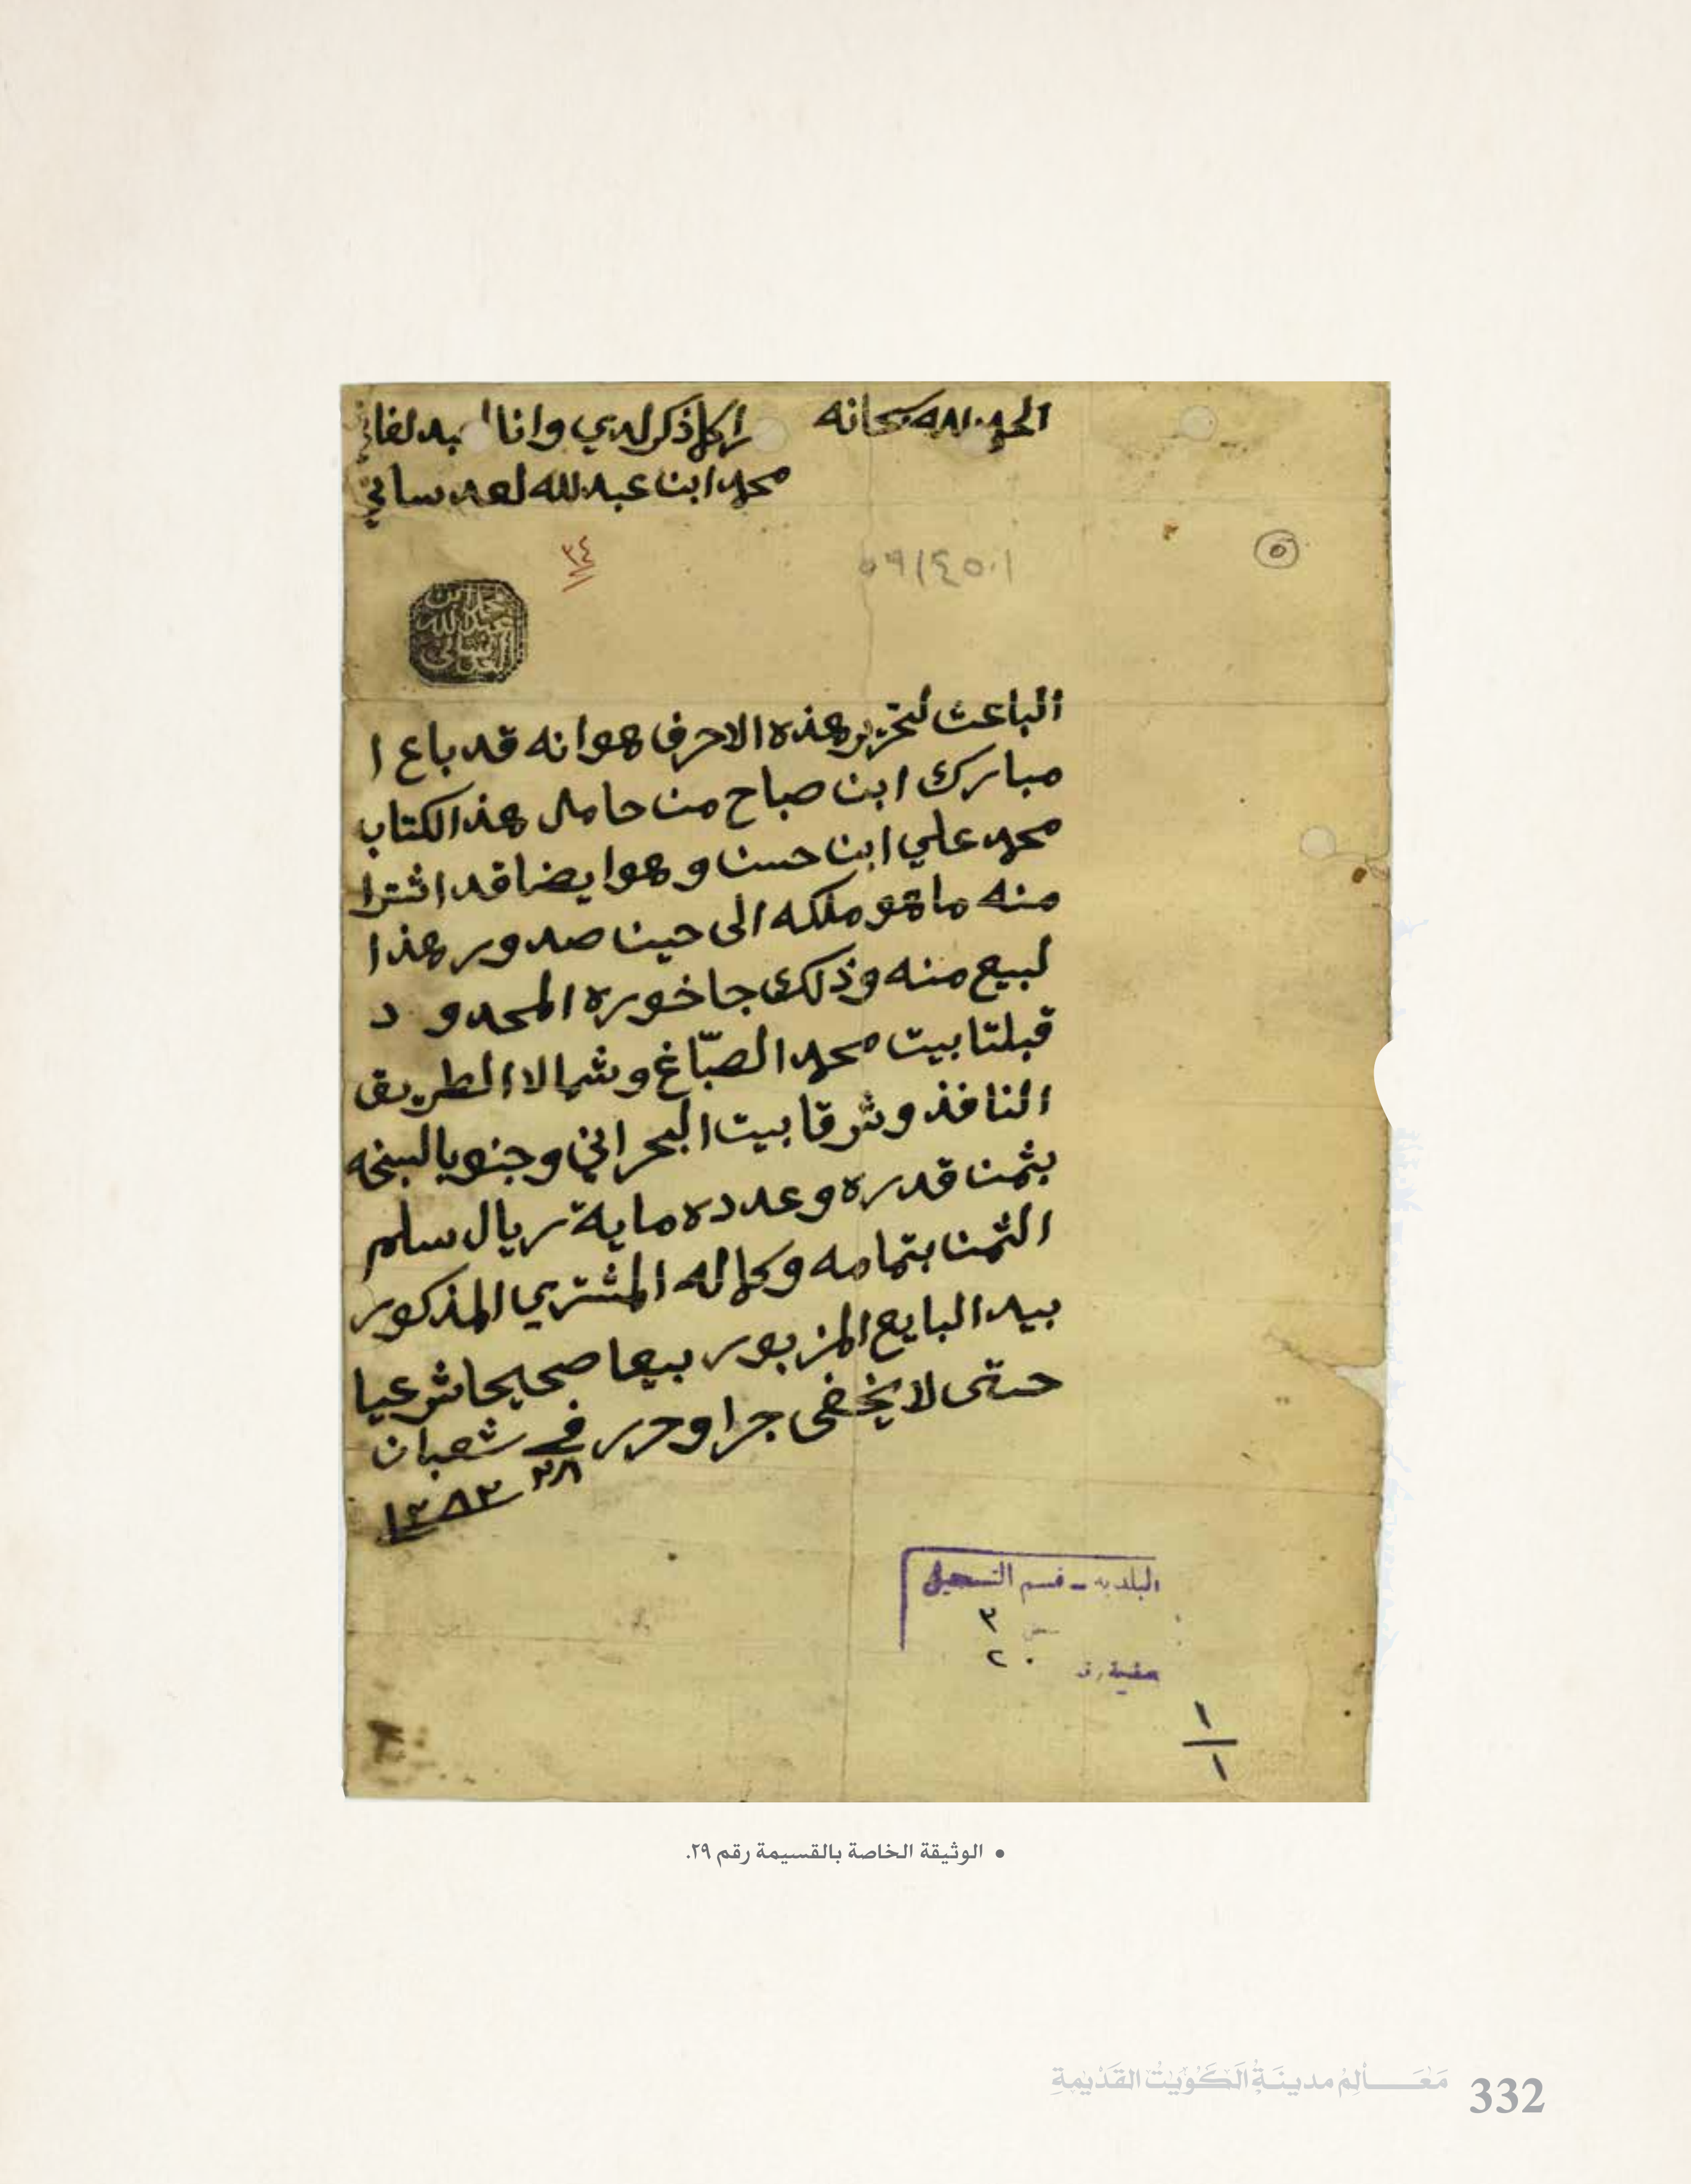 الحمد لله سبحانه
اكلاذكرلدي وانا
محمد ابن عبدلله لعدساني
٣٤
٥٩/٤٥٠١
٥
عبدالله
العدساني
الباعث لتحرير هذه الاحرف هوا نه قد باع ا
مبارك ابن صباح من حامل هذالكتاب
محمد علي ابن حسن وهوا يضا قد اشترا
منه ماهو ملكه الى حين صدور هذا
لبيع منه وذلك جاخوره المحدو د
قبلتا بيت محمد الصبّاغ وشمالا الطريق
النافذ وشرقا بيت البحراني وجنوبا لسبخه
بثمن قدره وعدده ماية ريال سلم
الثمن بتمامه وكماله المشتري المذكور
بيد البايع المزبور بيعا صحيحا شرعيا
حتى لا يخفى جرا وحرر في شعبان
٢٨ ١٢٨٣
البلديه - قسم التسجيل
٣
٢٠
١
١
• الوثيقة الخاصة بالقسيمة رقم ٢٩.
مَعَـــالِمُ مدينَةُ الكُوَيْتُ القَدْيمةِ 332